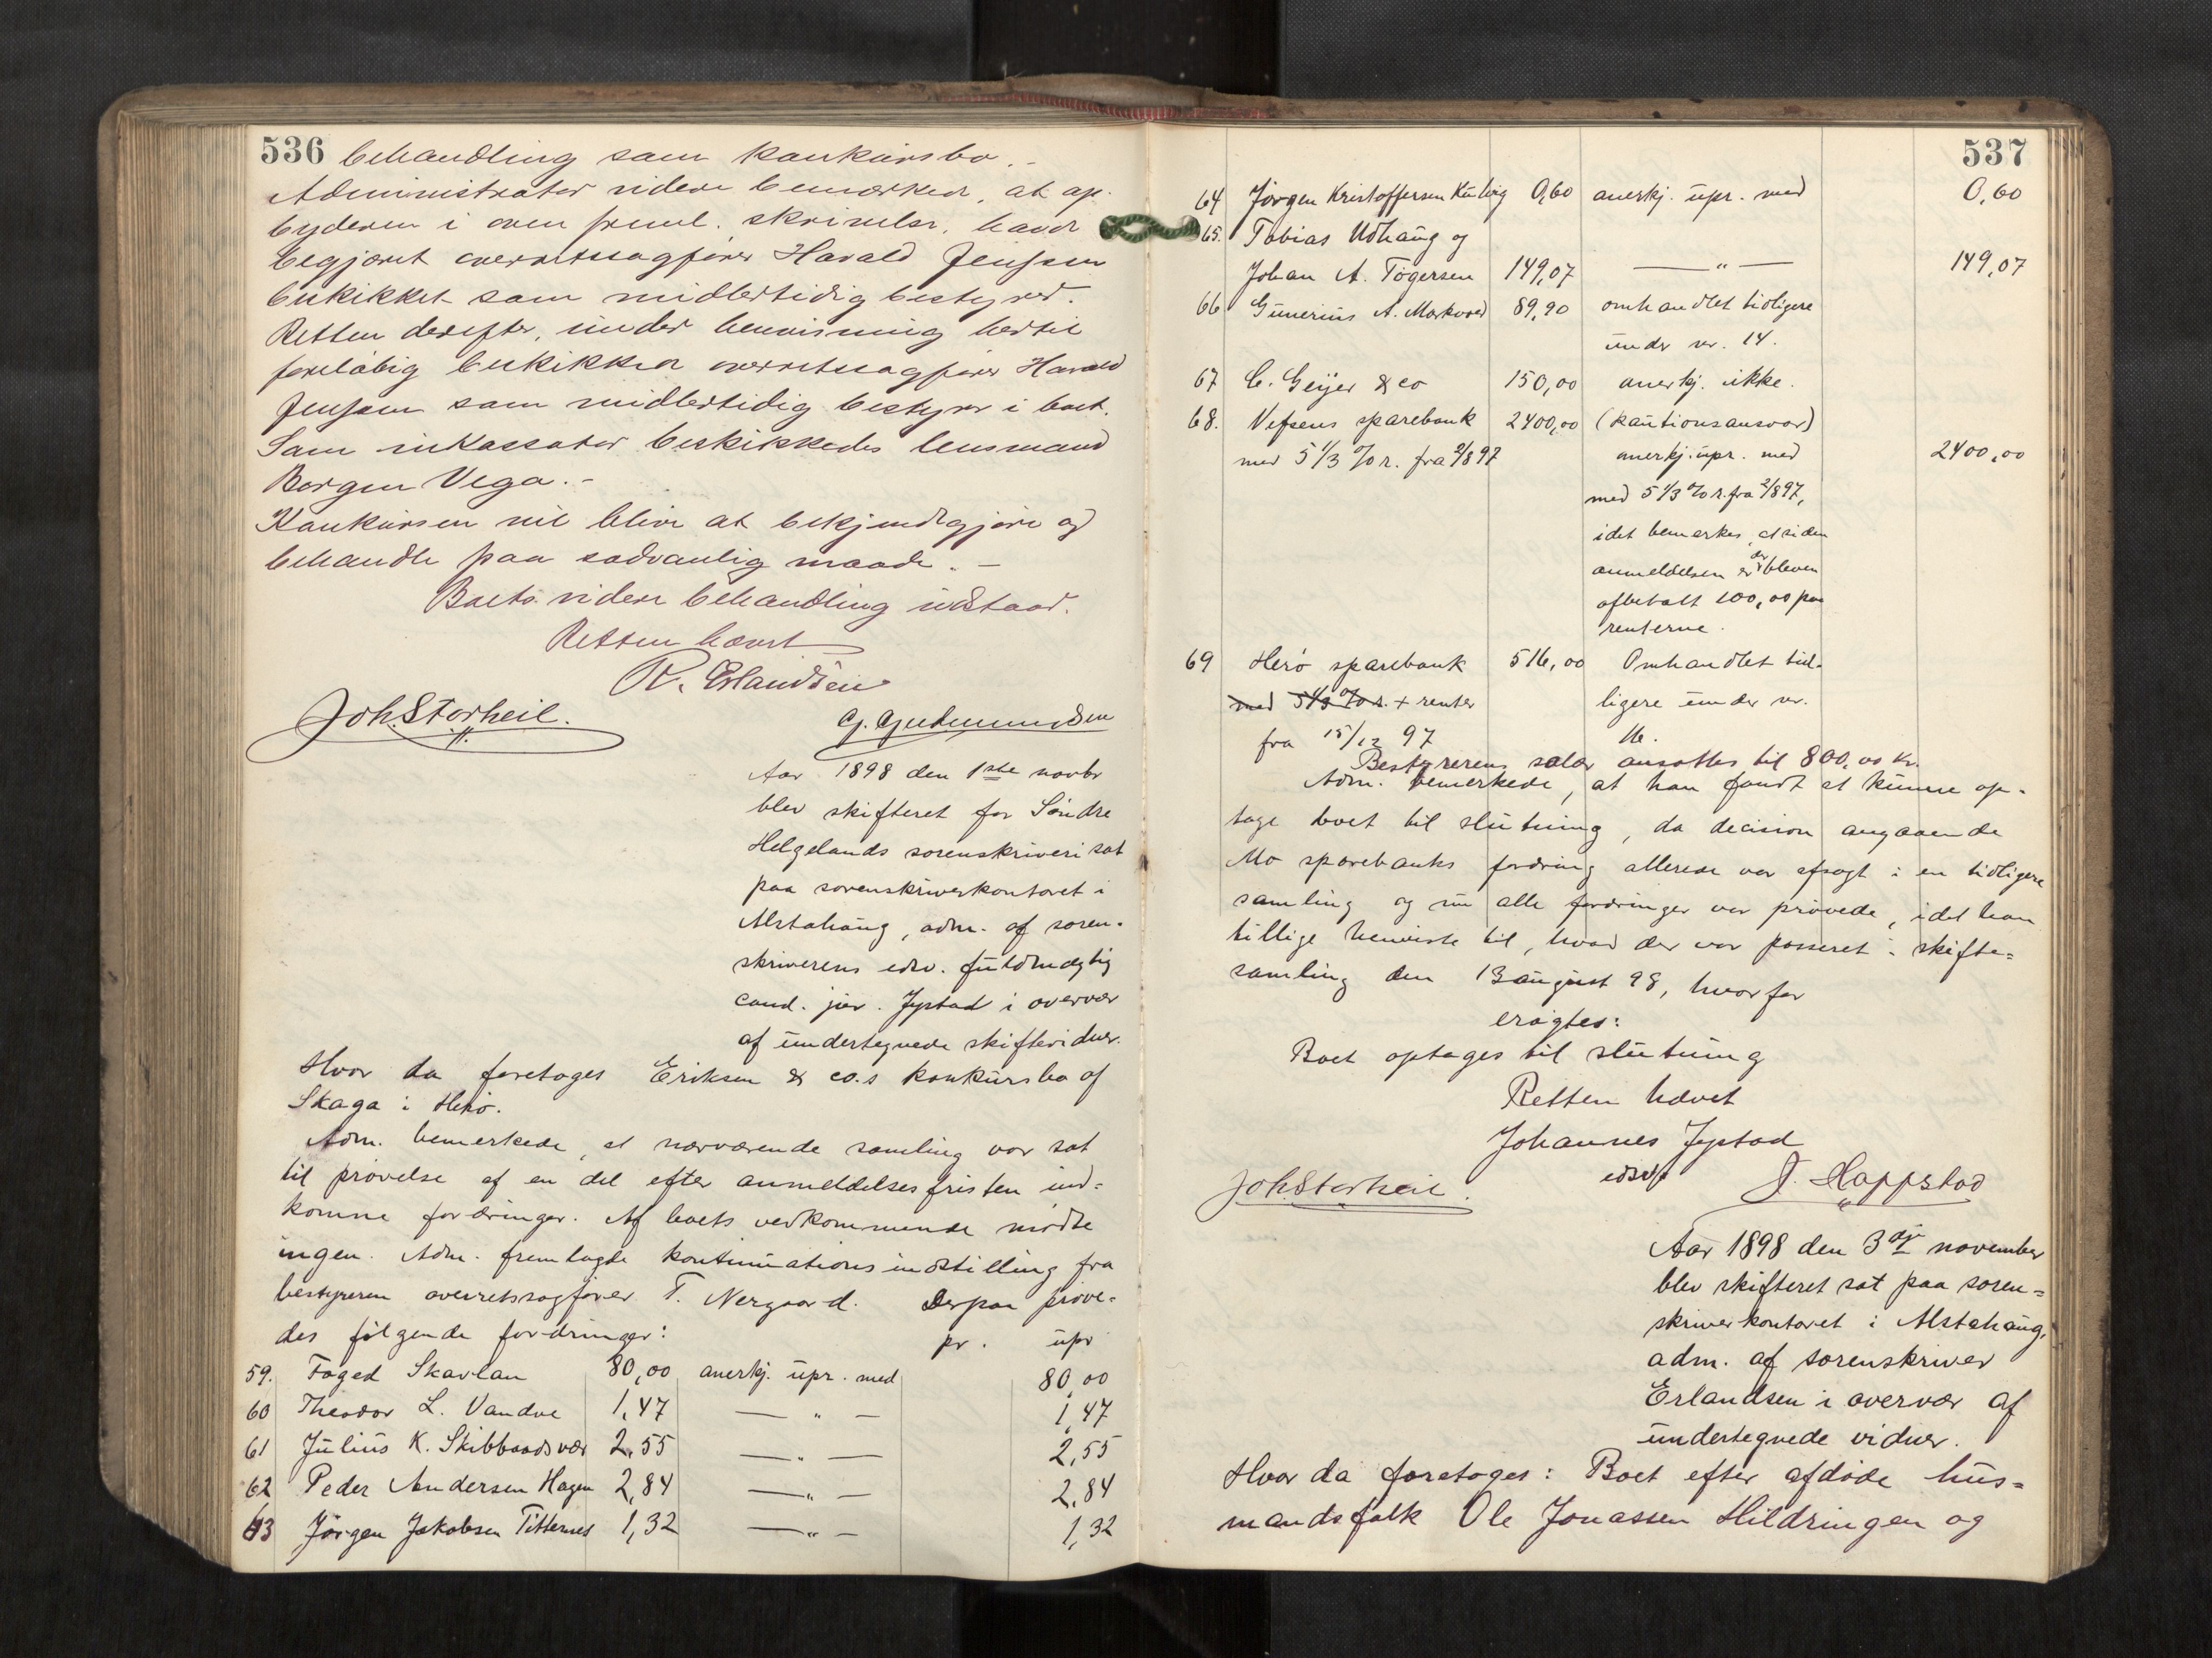 536
behandling som konkursbo.-
Administrator videre bemærked, at op-
byderen i oven freml. skrivelse, havde
begjæret overretssagfører Harald Jenssen
beskikket som midlertidig bestyrer.
Retten derefter, under henvisning hertil
foreløbig beskikked overretssagfører Harald
Jenssen som midlertidig bestyrer i boet.
Som inkassator beskikkedes lensmand
Borgen Vega.-
Konkursen vil blive at bekjendtgjøre og
behandle paa sædvanlig maade.-
Boets videre behandling udstaar.
Retten hævet
R. Erlandsen
Joh. Storheil. G. Gudmundsen
Aar 1898 den 1ste novbr
blev skifteret for Søndre
Helgelands sorenskriveri sat
paa sorenskriverkontoret i
Alstahaug, adm. af soren-
skriverens edsv. fuldmægtig
cand. jur. Jystad i overvær
af undertegnede skiftevidner.
Hvor da foretoges Eriksen & co.s konkursbo af
Skaga i Herø.
Adm. bemerkede, at nærværende samling var sat
til prøvelse af en del efter anmeldelsesfristen ind=
komne fordringer. Af boets vedkommende mødte
ingen. Adm. fremlagde kontinuationsindstilling fra
bestyreren overretssagfører T. Nergaard. Derpaa prøve-
des følgende fordringer: pr. upr
59. Foged Skavlan 80,00 anerkj. upr. med 80,00
60 Theodor L. Vandve 1,47 — „ — 1,47
61 Julius K. Skibbaadsvær 2,55 — „ — 2,55
62 Peder Andersen Hagen 2,84 — „ — 2,84
63 Jørgen Jakobsen Titternes 1,32 — „ — 1,32
537
64 Jørgen Kristoffersen Kulvig 0,60 anerkj. upr. med 0,60
65. Tobias Udhaug og
Johan A. Tøgersen 149,07 — „ — 149,07
66 Gunerius A. Markvoed 89,90 omhandlet tidligere
under nr. 14.
67 C. Geijer & co 150,00 anerkj. ikke.
68. Vefsens sparebank 2400,00 (kautionsansvar)
med 5 1/3 % r. fra 2/8 97 anerkj. upr. med 2400,00
med 5 1/3 % r. fra 2/8 97,
idet bemerkes, at siden
anmeldelsen er der bleven
afbetalt 100,00 paa
renterne.
69 Herø sparebank 516,00 Omhandlet tid-
med 5 1/3 % r. + renter ligere under nr.
fra 15/12 97 16.
Bestyrerens salær ansattes til 800,00 kr.
Adm. bemerkede, at han fandt at kunne op-
tage boet til slutning, da decision angaaende
Mo sparebanks fordring allerede var afsagt i en tidligere
samling og nu alle fordringer var prøvede, idet han
tillige henviste til, hvad der var passeret i skifte=
samling den 13 august 98, hvorfor
eragtes:
Boet optages til slutning
Retten hævet
Johannes Jystad
edsvf
Joh. Storheil. J. Happstad
Aar 1898 den 3dje november
blev skifteret sat paa soren=
skriverkontoret i Alstahaug,
adm. af sorenskriver
Erlandsen i overvær af
undertegnede vidner.
Hvor da foretoges: Boet efter afdøde hus=
mandsfolk Ole Jonassen Hildringen og